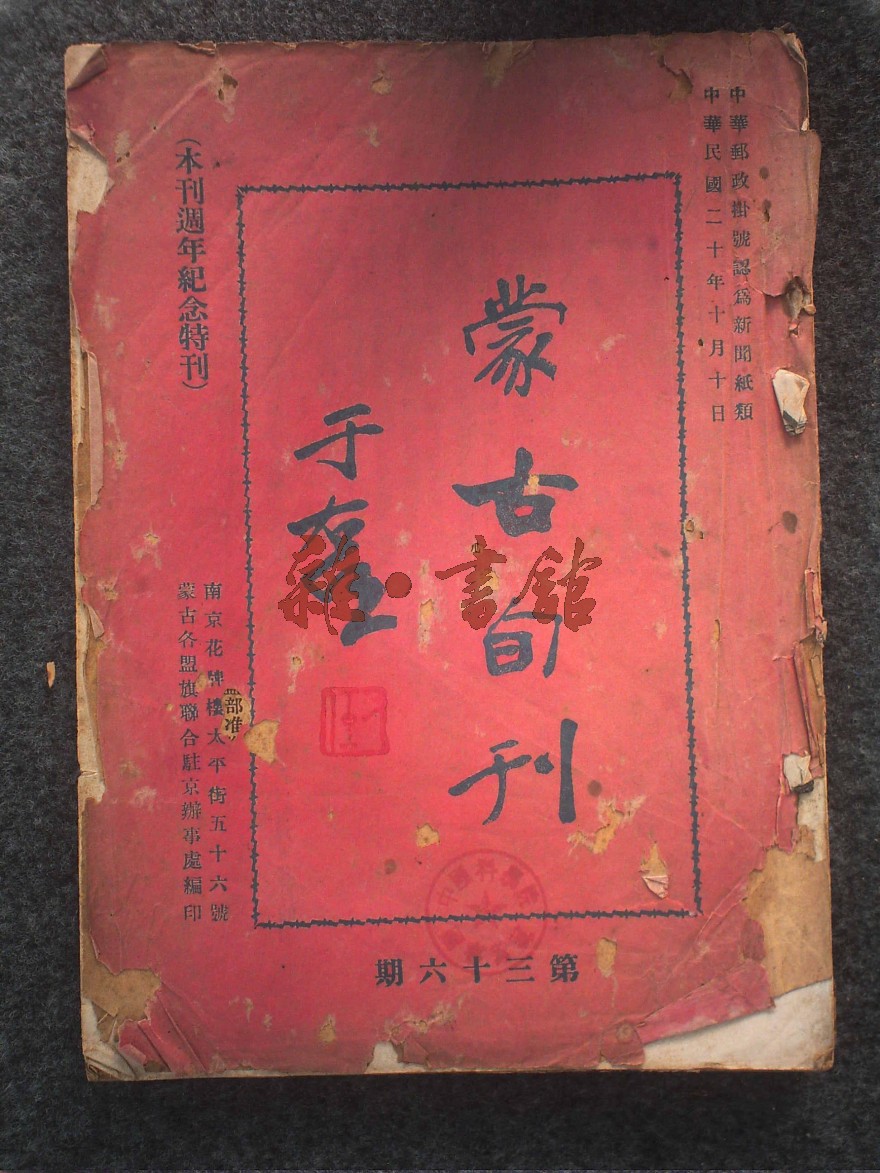 中華郵政掛號認爲新聞紙類
中華民國二十年十月十日
蒙古旬刊
于右任
(本刊週年紀念特刊)
南京花牌樓太平街五十六號
蒙古各盟旗聯合駐京辦事處編印
部准
第三十六期
雜·書館
中國科學院